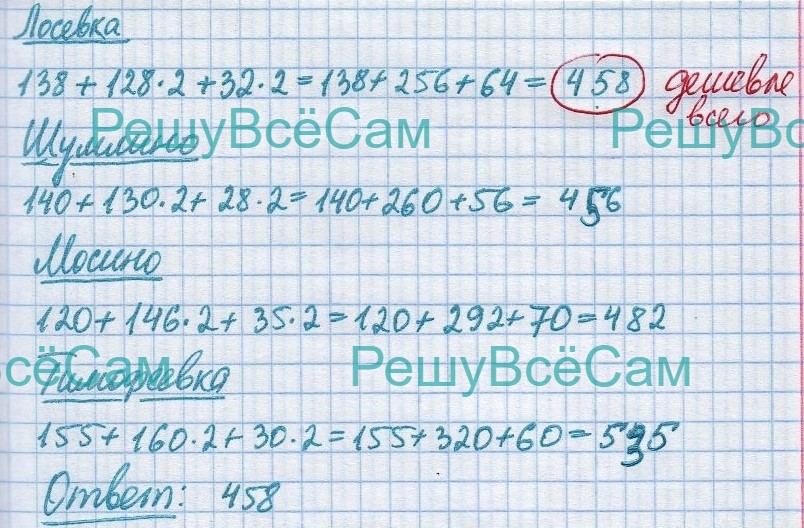 Лосевка
138 + 128·2 + 32·2 = 138 + 256 + 64 = 458 дешевле
всего
РешуВсёСам РешуВсё
Шуммино
140 + 130·2 + 28·2 = 140 + 260 + 56 = 456
Мосино
120 + 146·2 + 35·2 = 120 + 292 + 70 = 482
сёСам РешуВсёСам
Тимофеевка
155 + 160·2 + 30·2 = 155 + 320 + 60 = 535
Ответ: 458